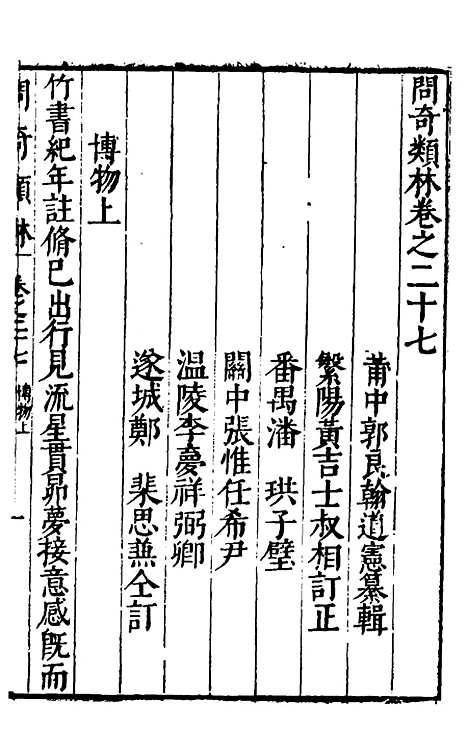 問奇類林卷之二十七
莆中郭良翰道憲纂輯
繁陽黃吉士叔相訂正
番禺潘 珙子璧
關中張惟任希尹
温陵李慶祥弼卿
遂城鄭 棐思燕仝訂
博物上
竹書紀年註脩巳出行見流星貫昴夢接意感旣而
問奇類林 卷之二十七 博物上 一